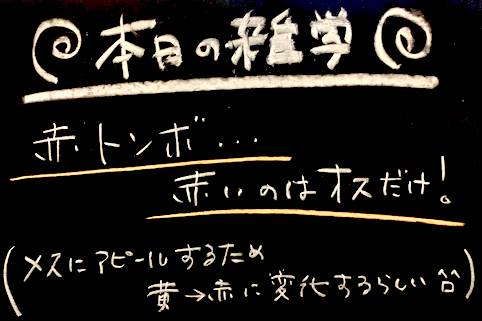 本日の雑学
赤トンボ...
赤いのはオスだけ!
(メスにアピールするため
黄→赤に変化するらしい)